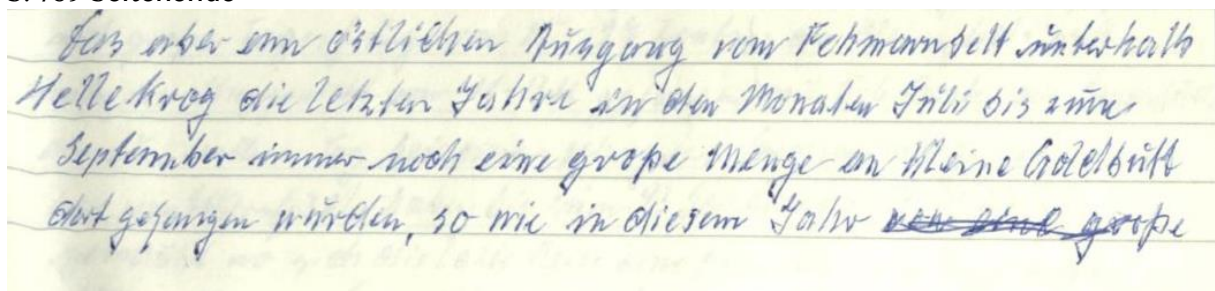 das aber am östlichen Ausgang vom Fehmarnbelt unterhalb
Hellekrog die letzten Jahre in den Monaten Juli bis zum
September immer noch eine große Menge an kleine Goldbutt
dort gefangen wurden, so wie in diesem Jahr große